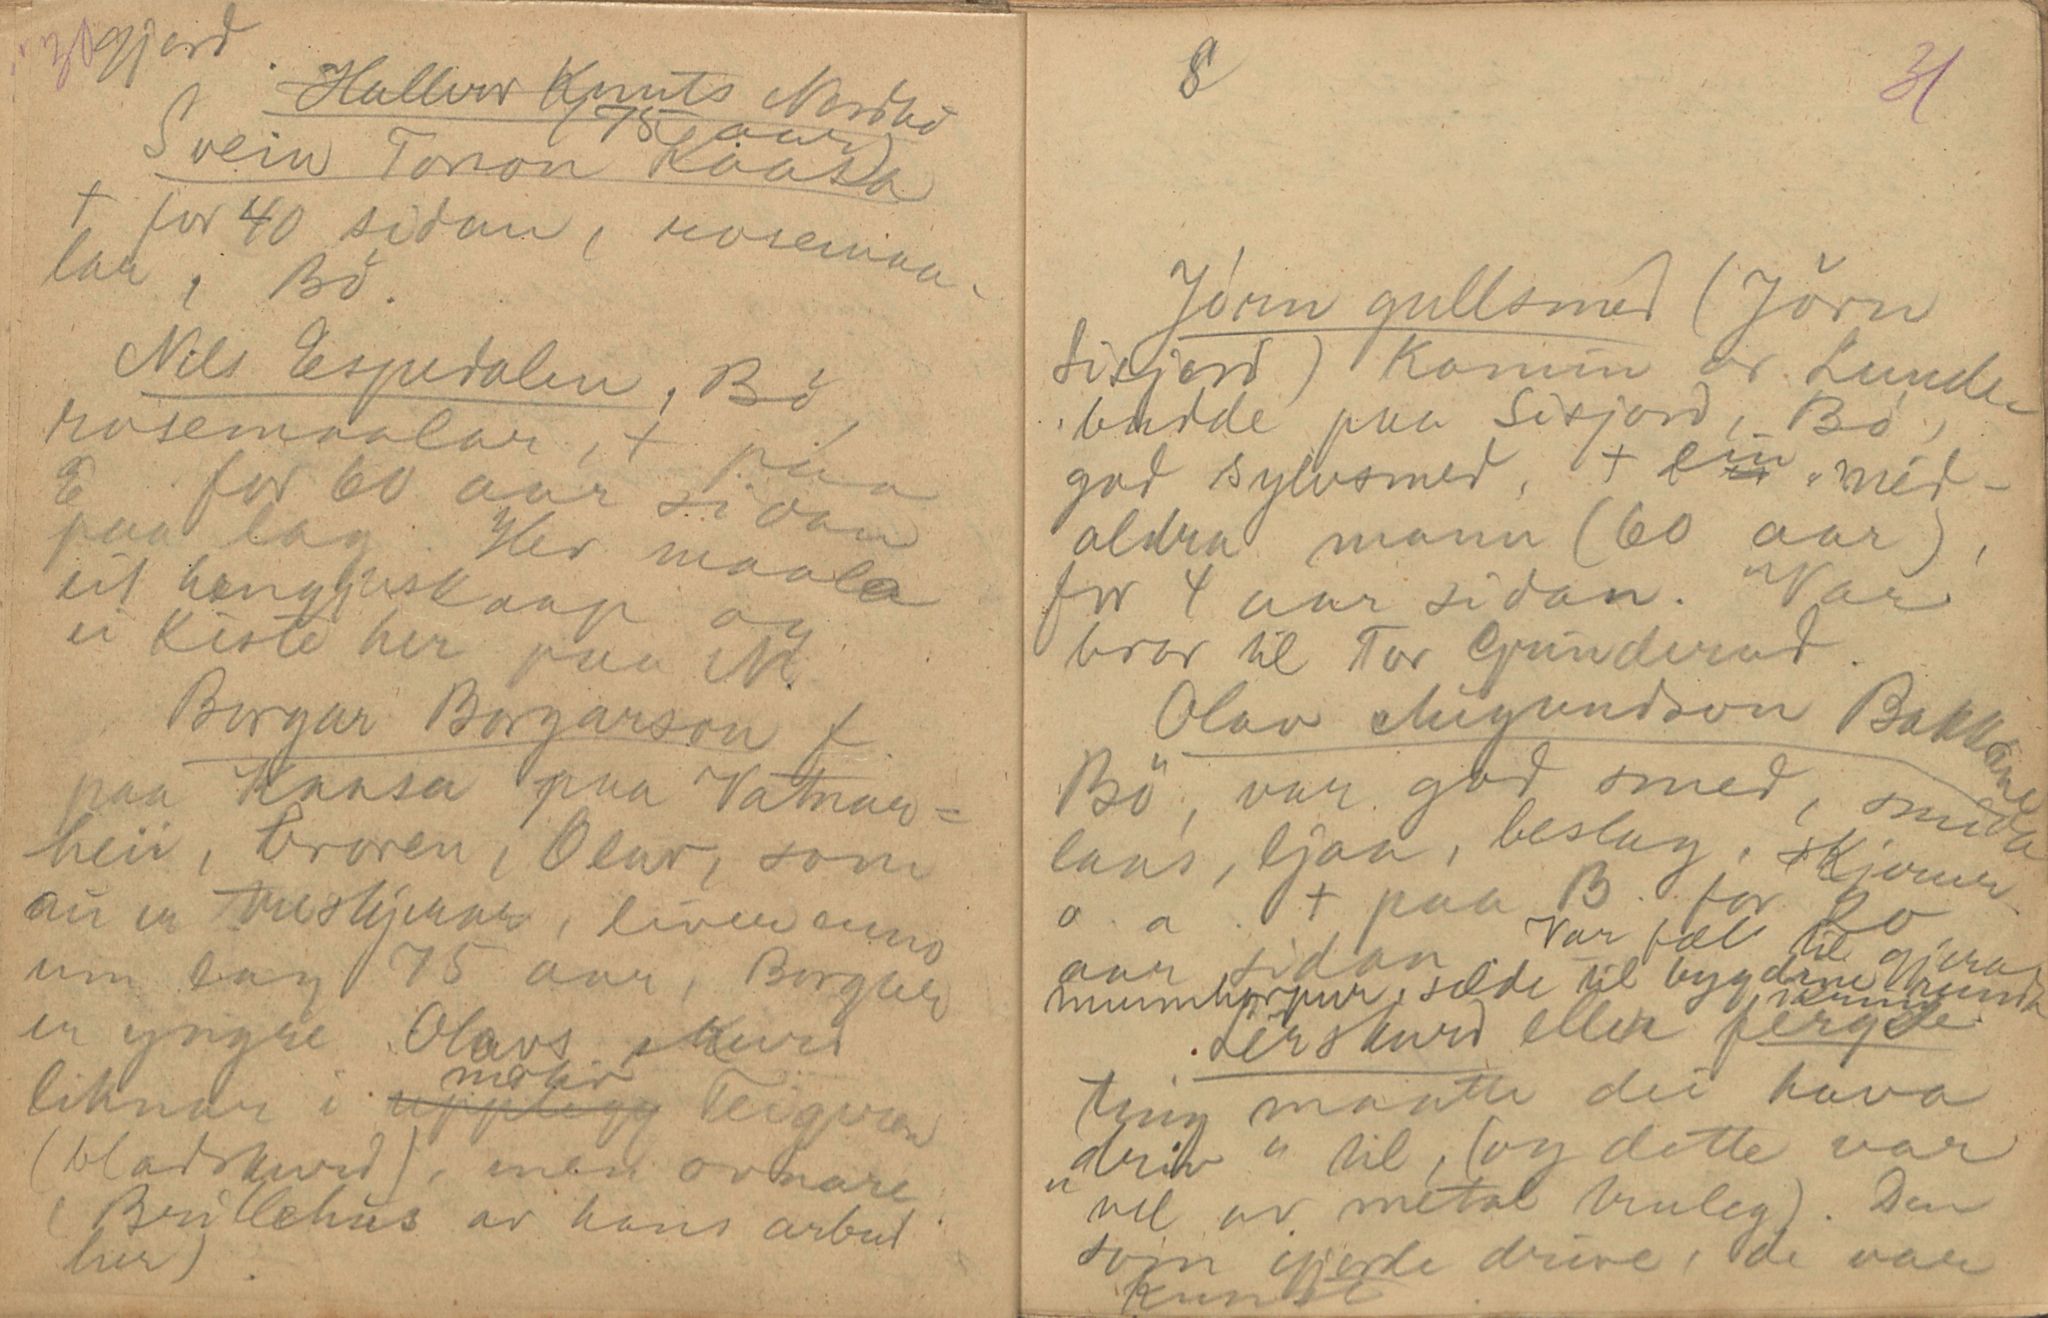 30
gjord.
Hallvor Knuts Nordbø
(75 aar)
Svein Torson Kaasa
† for 40 sidan, rosemaa-
lar, Bö.
Nils Espedalen, Bö,
rosemaalar, † paa
E for 60 aar sidan
paa lag. Her maala
eit hengjeskaap og
ei kiste her paa N.
Borgar Borgarson f.
paa Kaasa paa Vatnar=
heii, broren, Olav, som
au er treskjerar, liver enno
um lag 75 aar, Borgar
er yngre. Olavs skurd
liknar i møhr upplegg Teigpren
(bladskurd), men ovnare
(Brillehus av hans arbeid
her).
8
31
Jörn gullsmed (Jörn
Sisjord) Komin av Lunde
budde paa Sisjord, Bö,
god sylvsmed, † ein "mid-
aldra mann (60 aar),
for 4 aar sidan. "Var
bror til Tor Grunderud.
Olav Augundson Bakkane
Bö, var god smed, smidde
laas, ljaa, beslag, skjerer
o. a. † paa B. for 20
aar sidan Var fæl til gjera
munnhorpur, selde til bygdene rundt
ikring
Lerskurd eller fergde
ting maatte dei hava
"driv" til, (og dette var
vel av metal truleg). Den
som gjorde drive, de var
kunst